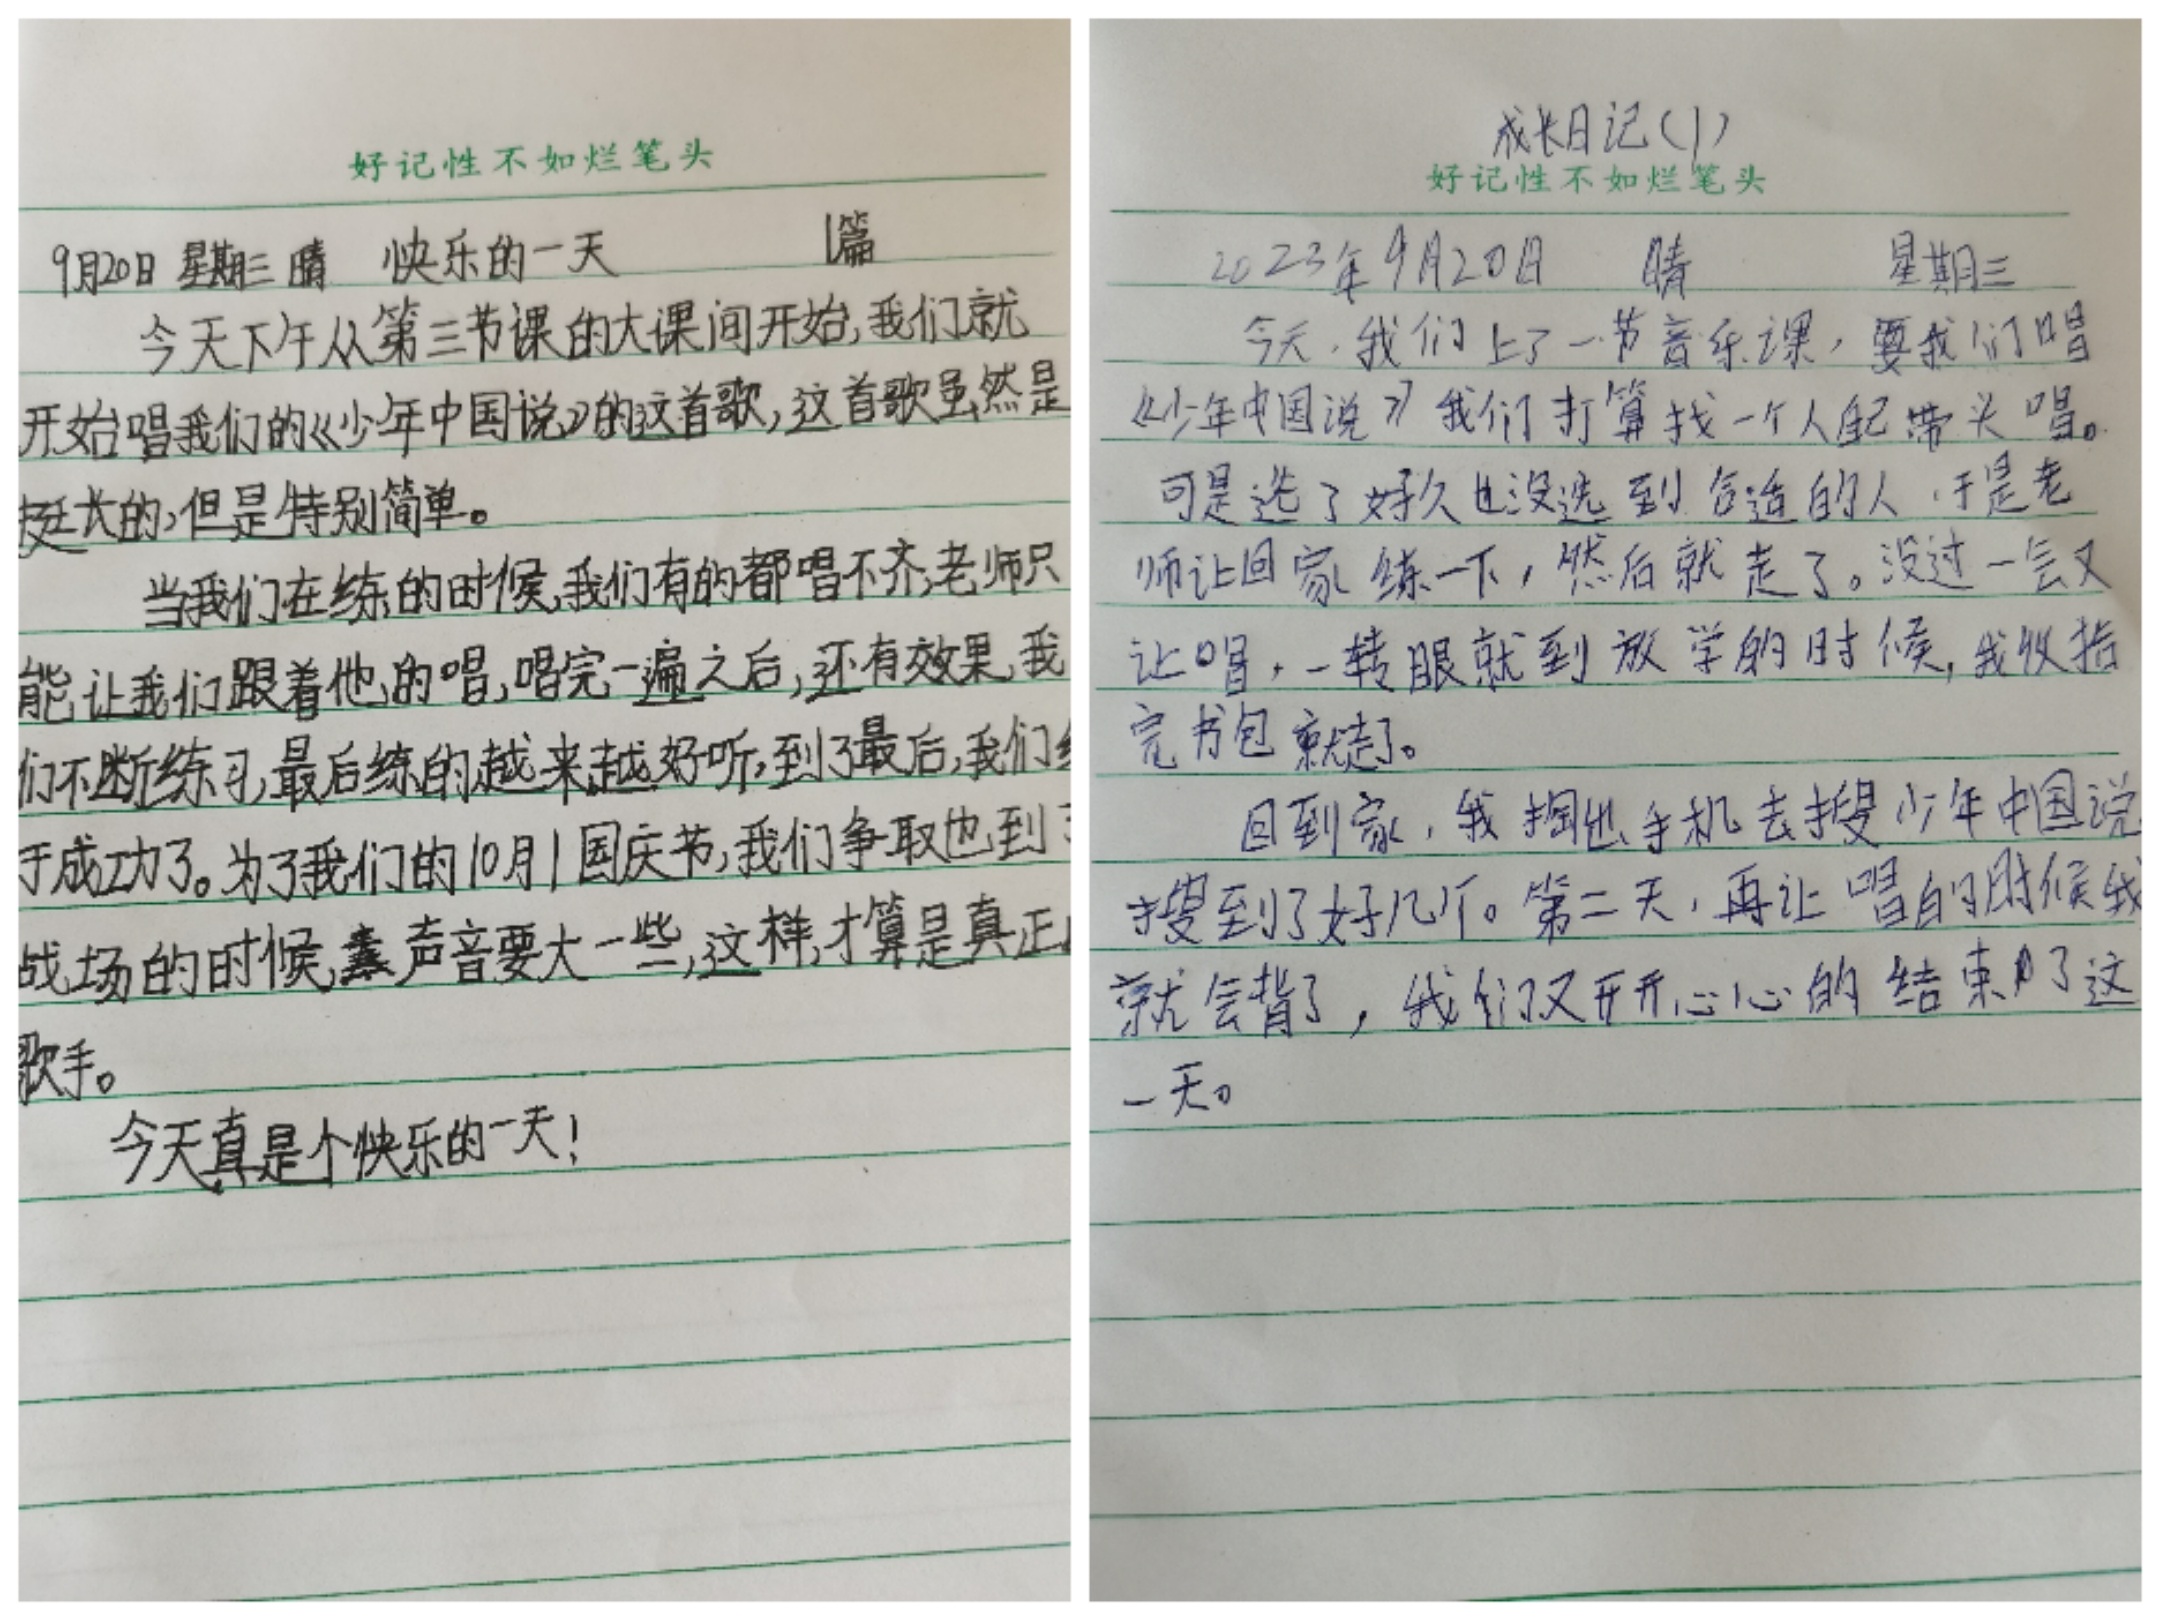 好记性不如烂笔头
9月20日 星期三 晴 快乐的一天 1篇
今天下午从第三节课的大课间开始,我们就
开始唱我们的《少年中国说》的这首歌,这首歌虽然是
挺长的,但是特别简单。
当我们在练的时候,我们有的都唱不齐,老师只
能让我们跟着他的唱,唱完一遍之后,还有效果,我
们不断练习,最后练的越来越好听,到了最后,我们
于成功了。为了我们的10月1国庆节,我们争取也到
战场的时候,声音要大一些,这样,才算是真正
歌手。
今天真是个快乐的一天!
成长日记(1)
好记性不如烂笔头
2023年9月20日 晴 星期三
今天,我们上了一节音乐课,要我们唱
《少年中国说》我们打算找一个人配带头唱。
可是选了好久也没选到合适的人,于是老
师让回家练一下,然后就走了。没过一会又
让唱,一转眼就到放学的时候,我收拾
完书包就走了。
回到家,我掏出手机去搜少年中国说
搜到了好几个。第二天,再让唱的时候我
就会背了,我们又开开心心的结束了这
一天。